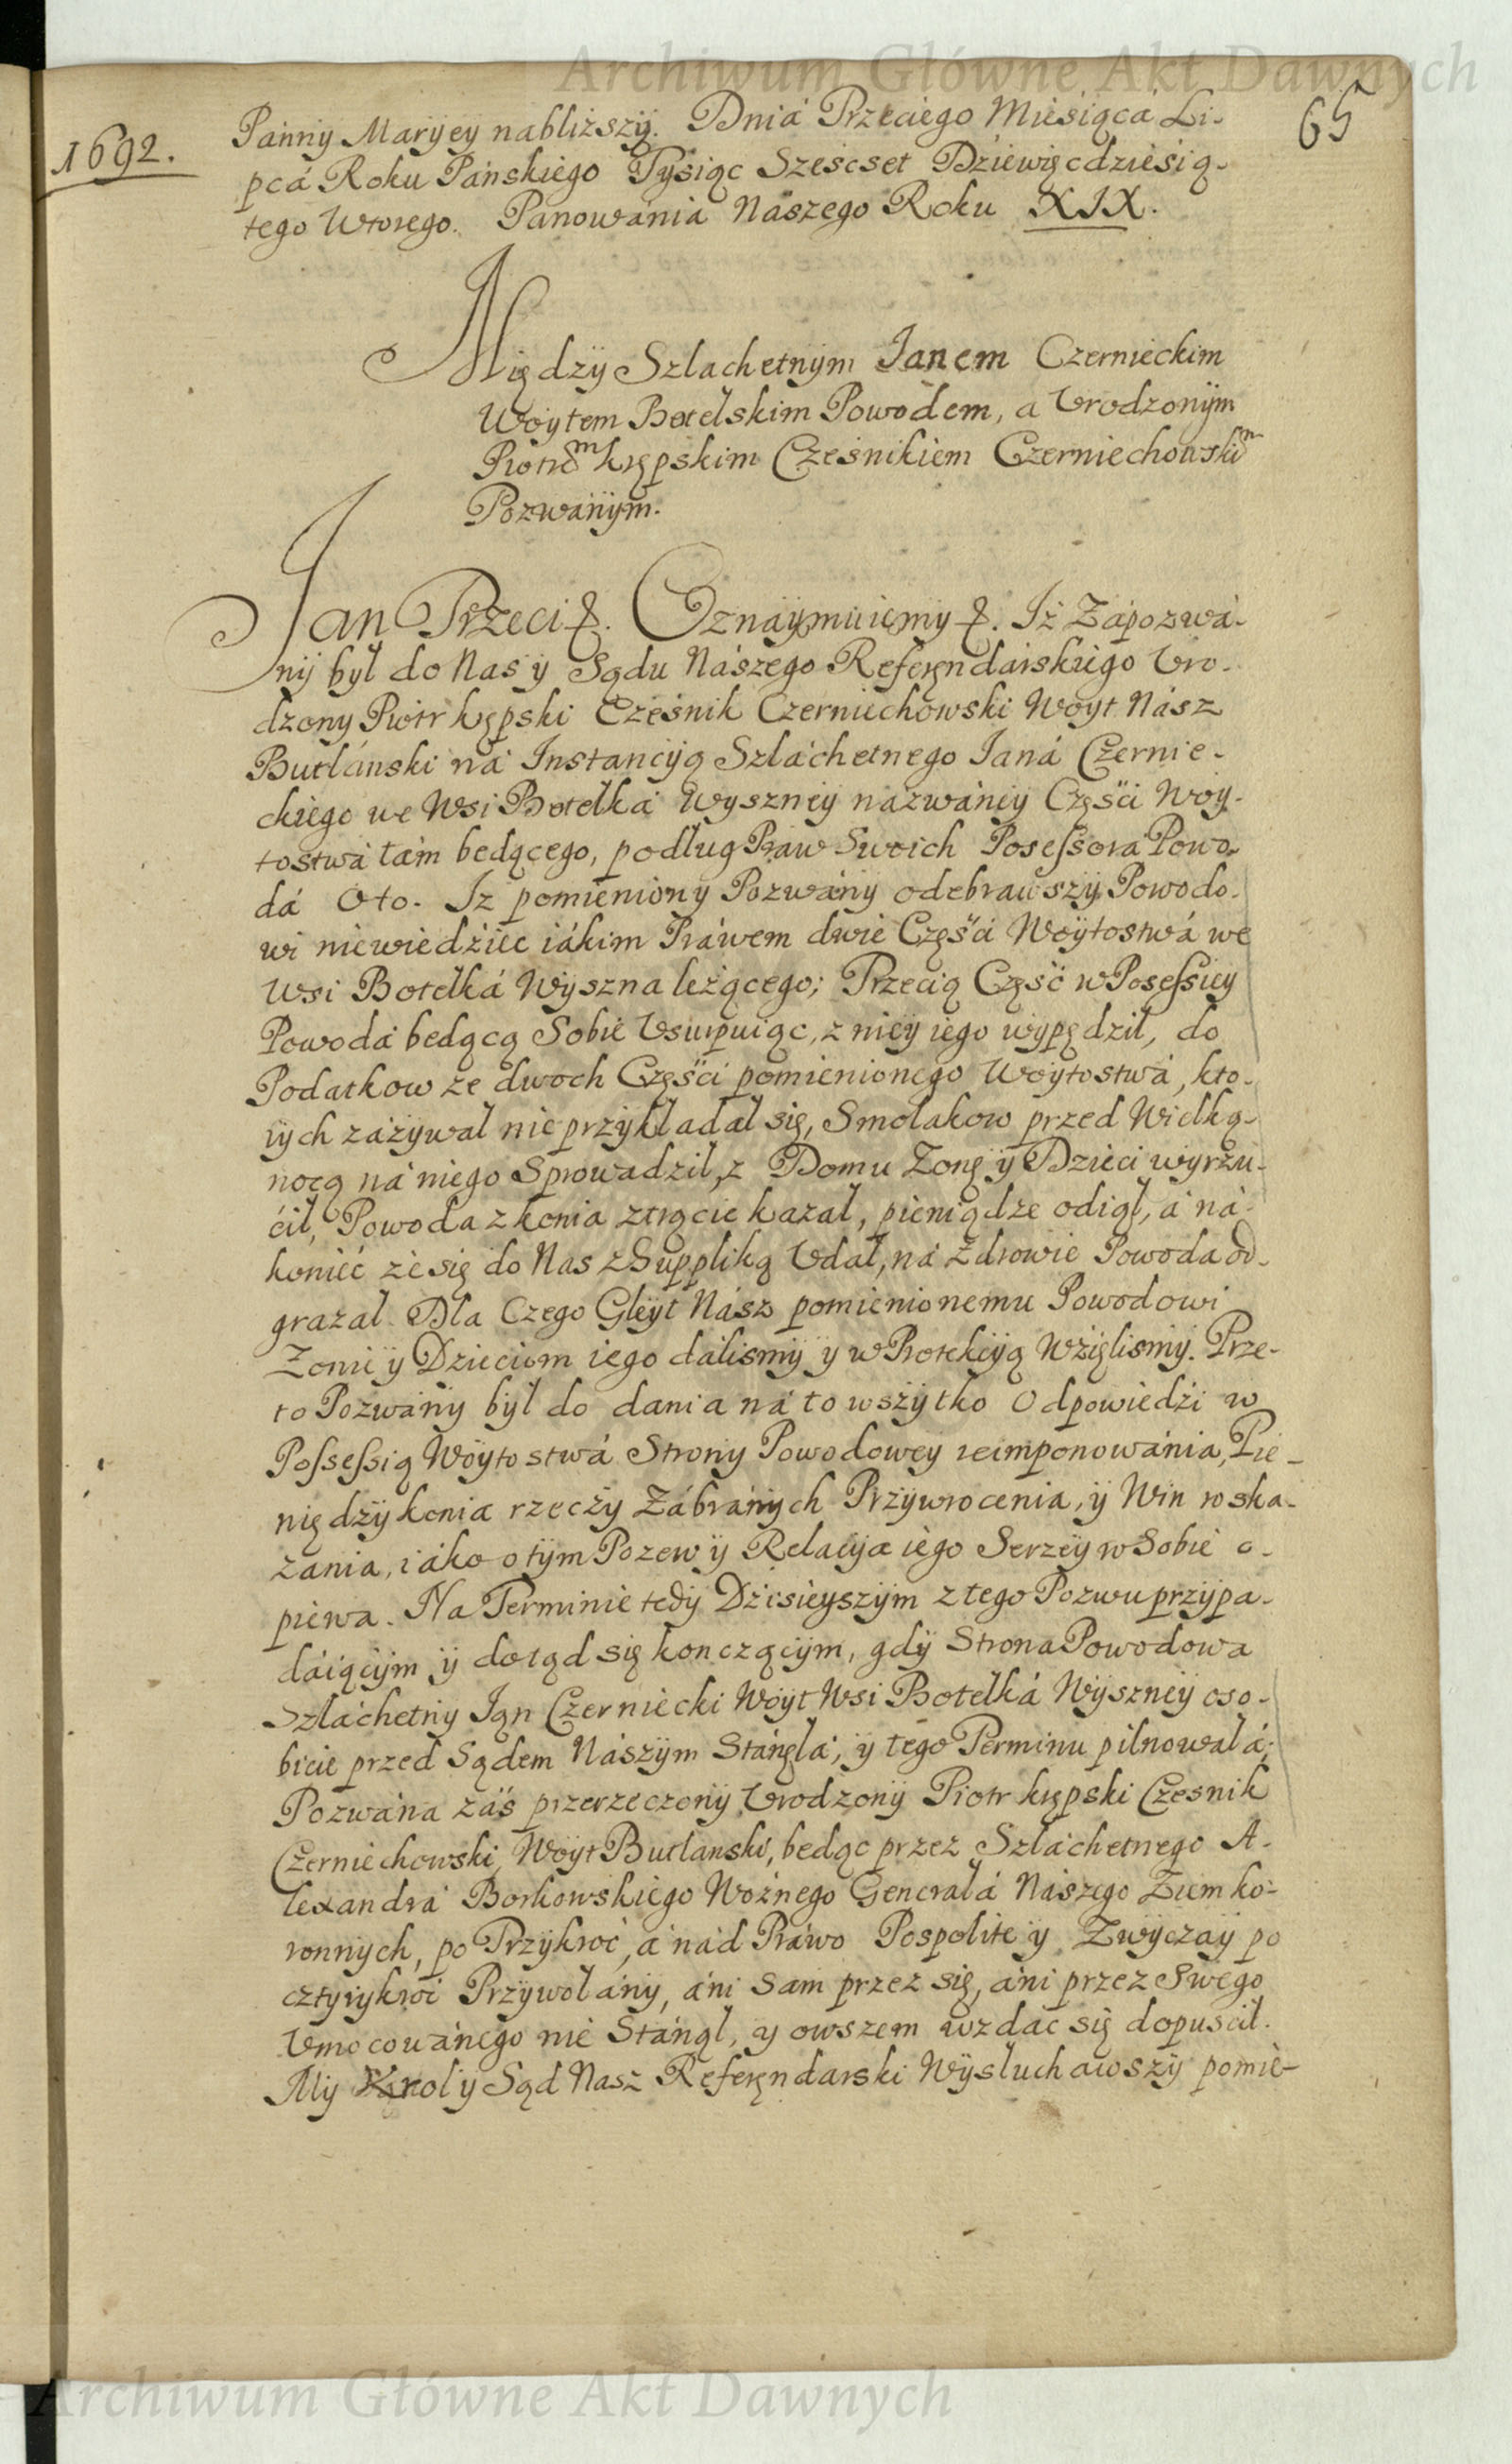 Archiwum Główne Akt Dawnych
65
1692.
Panny Maryey nabliższy. Dniá Trzeciego Miesiącá Li-
pcá Roku Pańskiego Tysiąc Sześcset Dziewięcdziesią-
tego Wtorego. Panowánia Nászego Roku XIX.
Między Szlachetnym Janem Czernieckim
Woytem Botelskim Powodem, a Vrodzonym
Piotrem Kępskim Cześnikiem Czerniechowskim
Pozwánym.
Jan Trzeci &. Oznáymuiemy &. Iż Zápozwá-
ny był do Nas y Sądu Nászego Referendarskiego Vro-
dzony Piotr Kępski Cześnik Czerniechowski Woyt Nász
Butláński ná Instancyą Szláchetnego Janá Czernie-
ckiego we Wsi Botelká Wyszney názwáney Częsci Woy-
tostwá tám będącego, podług Praw Swoich Posessorá Powo-
dá Oto. Iż pomieniony Pozwány odebrawszy Powodo-
wi niewiedziec iákim Práwem dwie Częsci Woytostwá we
Wsi Botelká Wyszna leżącego; Trzecią Częsć w Posessiey
Powodá będącą Sobie Vsurpuiąc, z niey iego wypędził, do
Podatkow ze dwoch Częsci pomienionego Woytostwá, kto-
rych záżywał nie przykładał się, Smolakow przed Wielką-
nocą ná niego Sprowadził, z Domu Zonę y Dzieci wyrzu-
cił, Powoda z konia ztrącic kazał, pieniądze odiął, á ná-
koniec że się do Nas z Suppliką Vdał, ná zdrowie Powoda od-
grażał. Dla Czego Gleyt Nász pomienionemu Powodowi
Zonie y Dzieciom iego dálismy y w Protekcyą wzięlismy. Prze-
to Pozwány był do dania ná to wszytko Odpowiedzi w
Possessią Woytostwá Strony Powodowey reimponowánia, Pie-
niędzy konia rzeczy Zábránych Przywrocenia, y Win roska-
zania, iáko o tym Pozew y Relacya iego Serzey w Sobie o-
piewa. Na Terminie tedy Dzisieyszym z tego Pozwu przypa-
dáiącym y dotąd się konczącym, gdy Strona Powodowa
Szláchetny Jan Czerniecki Woyt Wsi Botelká Wyszney oso-
biscie przed Sądem Nászym Stánęlá, y tego Terminu pilnowałá;
Pozwána záś przerzeczony Vrodzony Piotr Kępski Cześnik
Czerniechowski, Woyt Butlanski, będąc przez Szláchetnego A-
lexandrá Borkowskiego Woźnego Generalá Nászego Ziem ko-
ronnych, po Trzykroć, á nád Práwo Pospolite y Zwyczáy po
cztyrykroć Przywołány, áni Sam przez się, áni przez Swego
Vmocowánego nie Stánął, y owszem wzdac się dopuscił.
My Krol y Sąd Nasz Referendarski Wysłuchawszy pomie-
Archiwum Główne Akt Dawnych